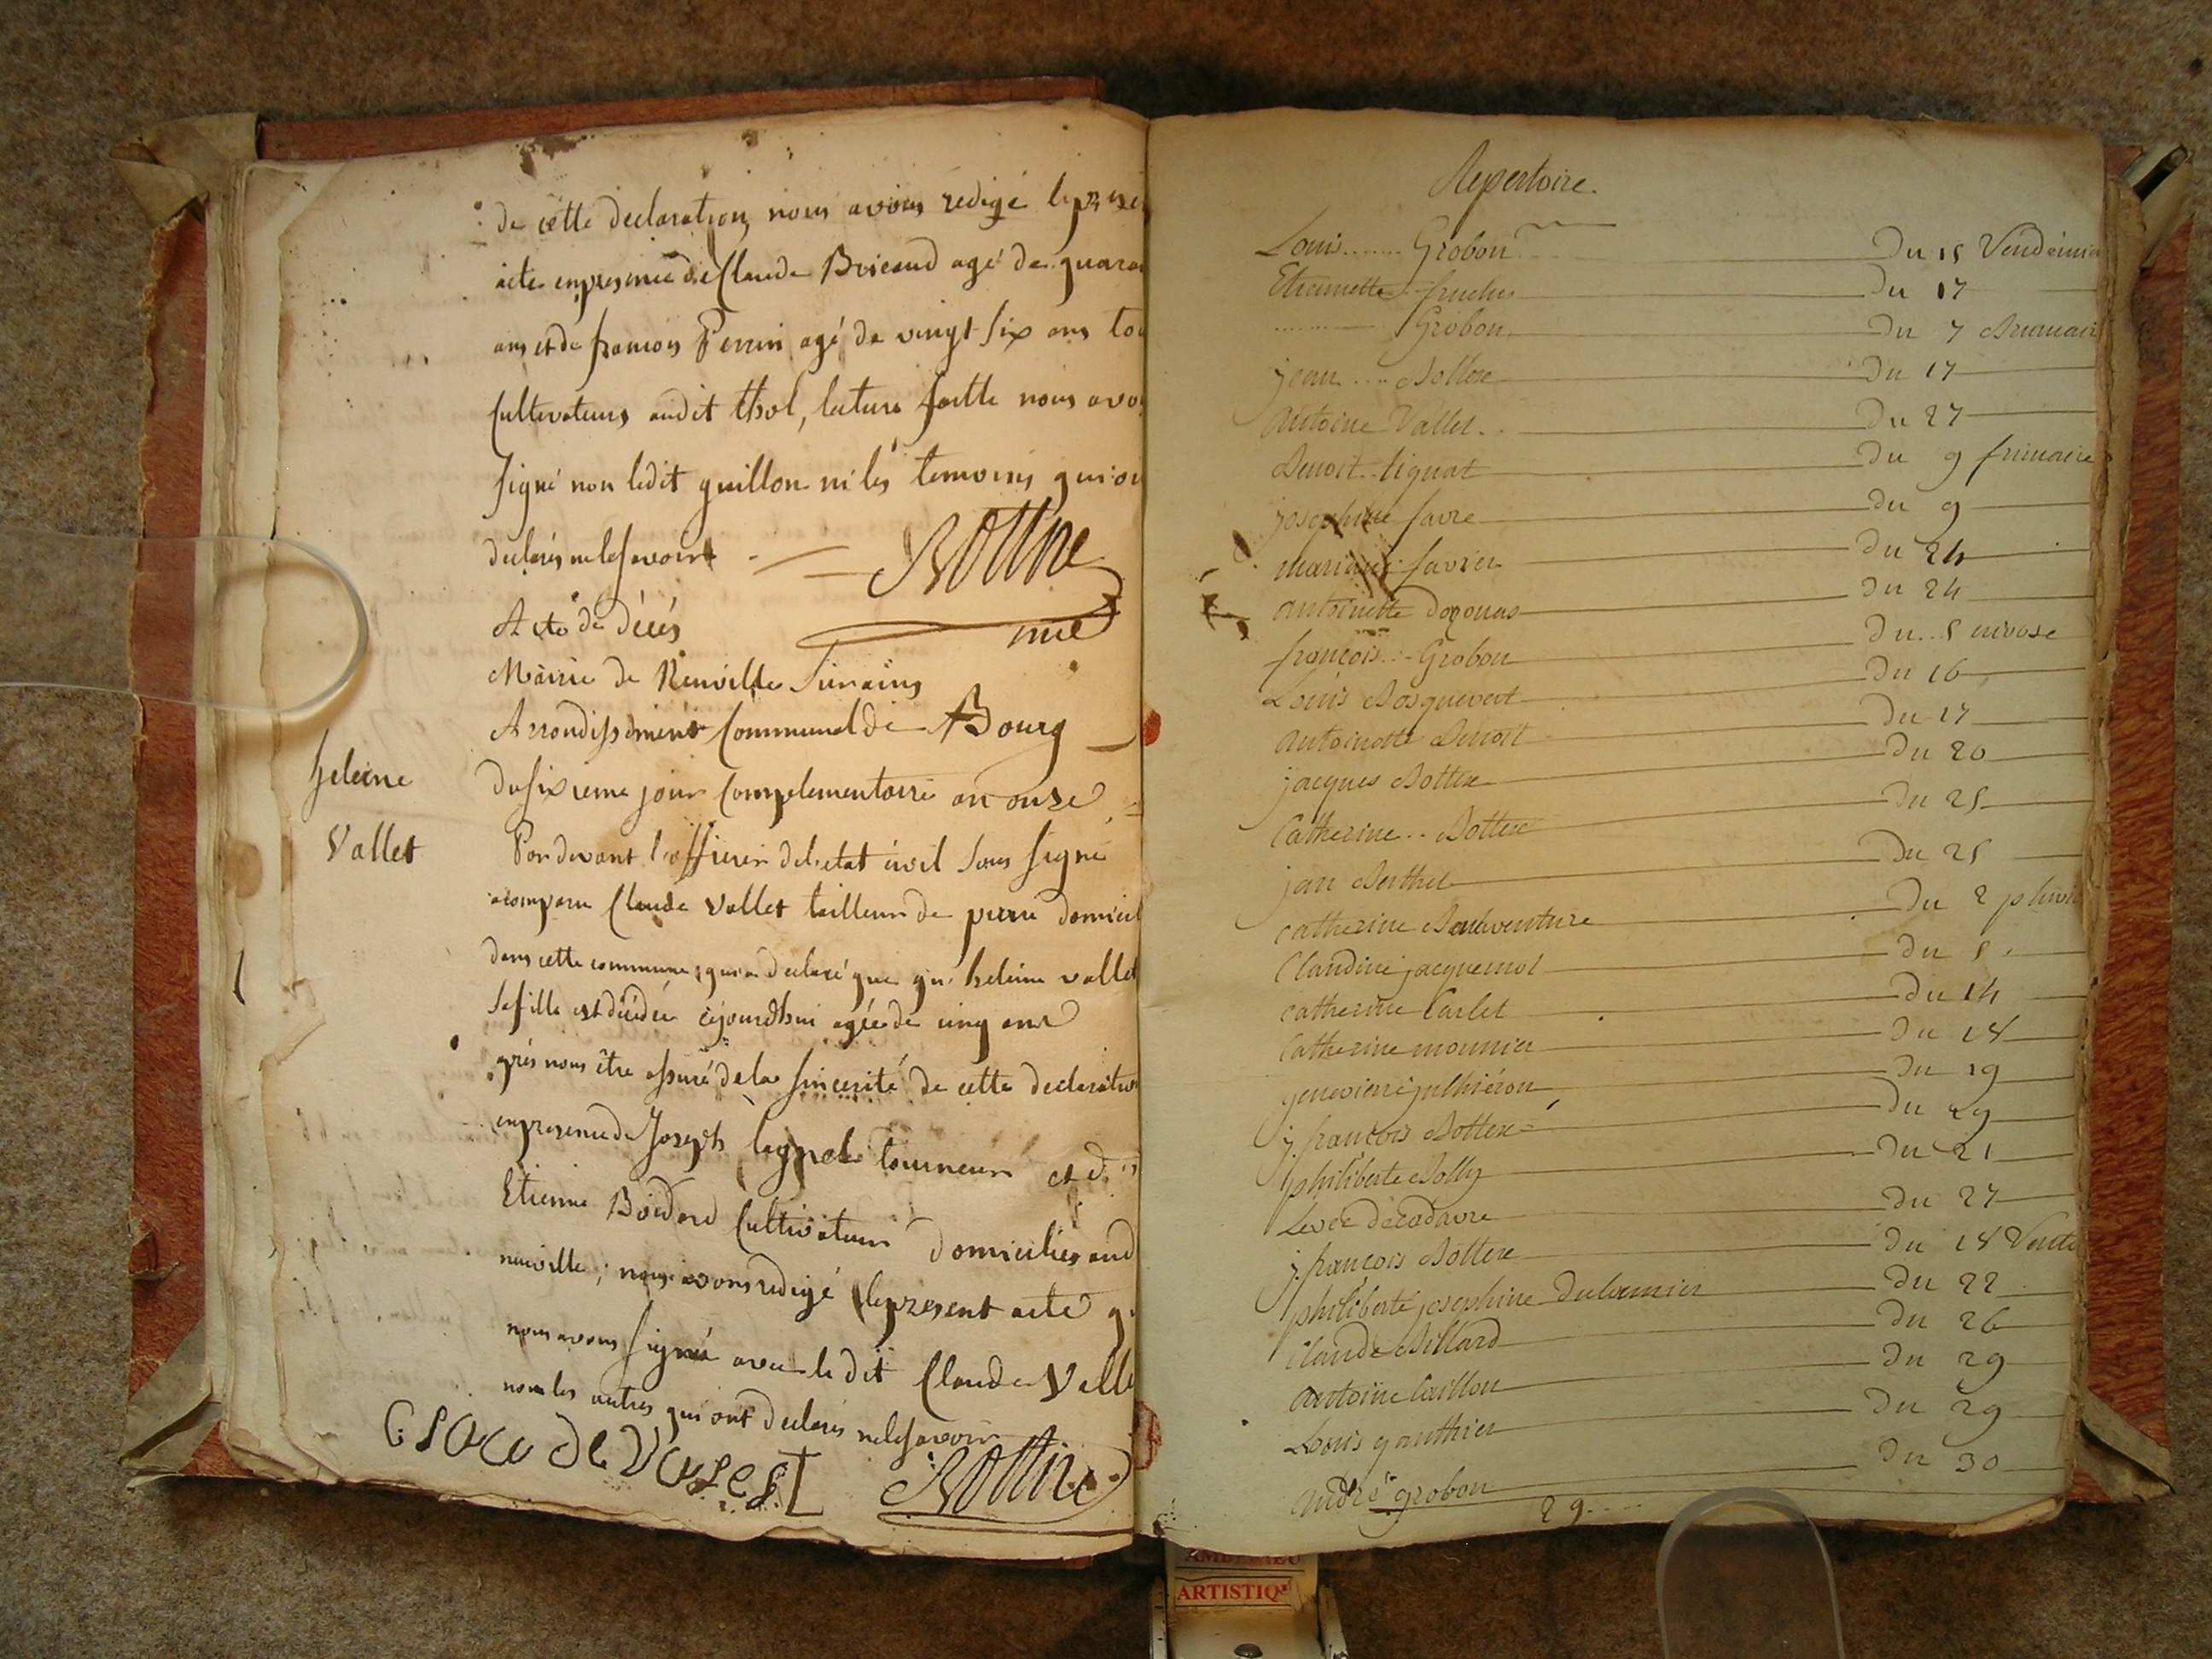 de cette declaration, nous avons redigé le prese
acte en presence de Claude Bricaud agé de quaran
ans et de francois Perrin agé de vingt six ans tou
Cultivateurs audit thol, lecture faitte nous avo
signé non ledit guillon ni les temoins qui on
declarés ne le savoir
Acte de décés
Mairie de Neuville sur ains
Arrondissement Communal de Bourg
heleine
Vallet
du sixieme jour Complementaire an onze
Par devant l'officier de l'etat civil sous signé
a comparu Claude Vallet tailleur de pierre domicil
dans cette commune, qui a declaré que qu' heleine vallet
sa fille est décédée cejourdhui agée de cinq ans
près nous être assuré de la sincerité de cette declaration
en presence de Joseph tourneur et d'
Etienne Cultivateur domiciliés aud
neuville; nous avons redigé le present acte q
nous avons signé avec le dit Claude Valle
non les autres qui ont declarés ne le savoir
Repertoire.
Louis ........ Grobon Du 15 Vendémiai
Du 17
Grobon Du 7 Brumair
jean .... Bottex Du 17
Antoine Vallet. Du 27
Benoit tignat Du 9 frimaire
josephine favre du 9
favrier Du 24
antoinette Du 24
françois Grobon Du .. 5 nivose
Louis Bosquevert Du 16
Antoinette Benoit Du 17
jacques Bottex Du 20
Catherine .. Bottex Du 25
jan Berthet Du 25
catherine Bonaventure Du 2 pluvio
Claudine jacquemot du 5
catherine Carlet Du 14
Catherine monnier Du 18
Du 19
j. françois Bottex Du 29
philiberte Bolly Du 21
Levée de cadavre Du 27
j. françois Bottex Du 18 Vento
philiberte josephine Du 22
Claude Billard Du 26
Antoine Caillon du 29
Louis gauthier Du 29
André grobon Du 30
29
ARTISTIQ